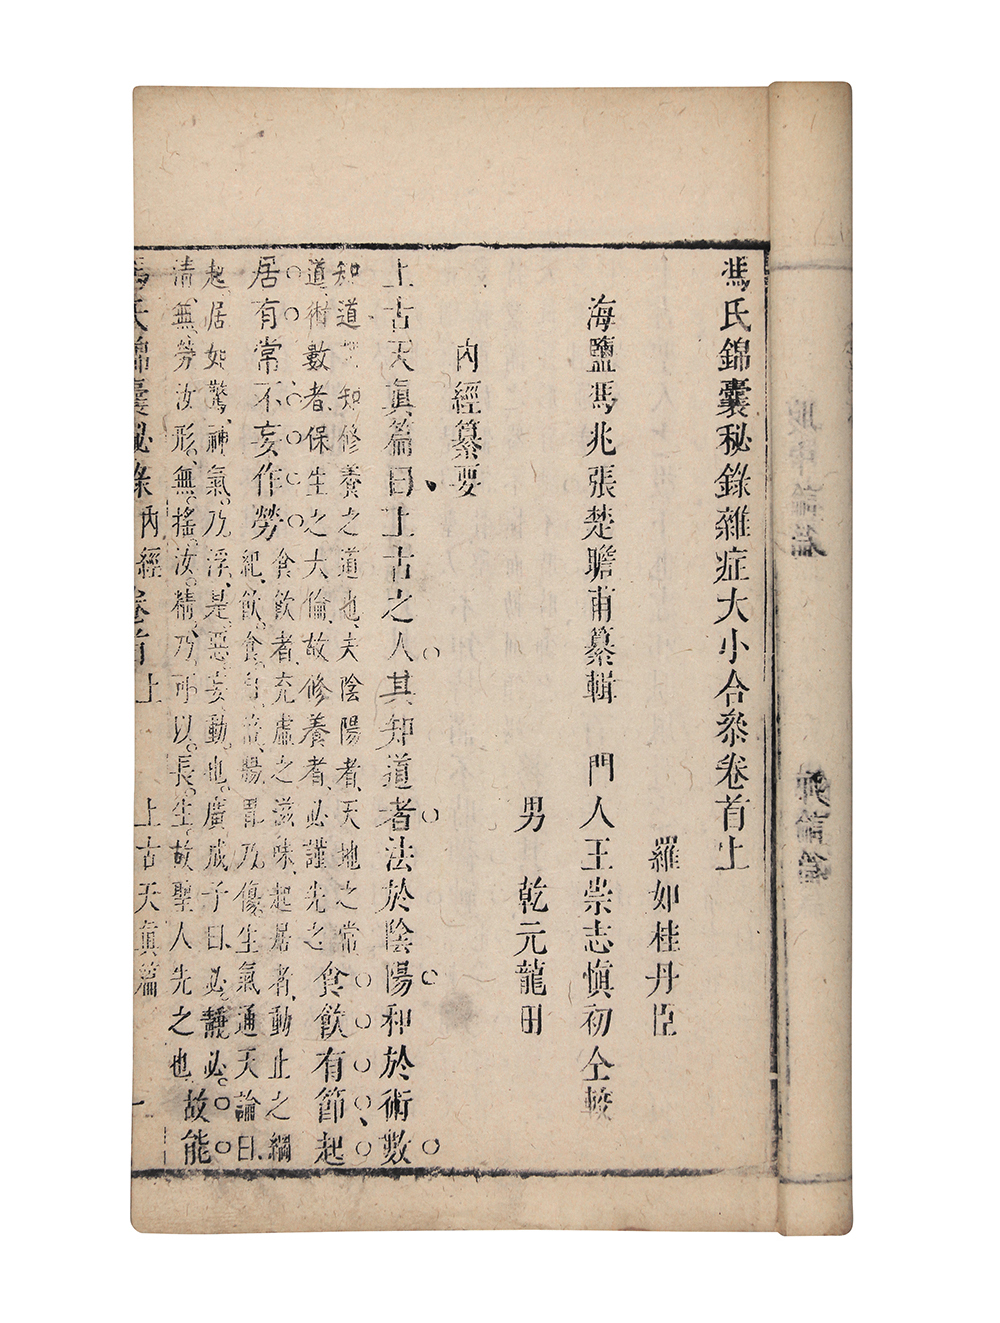 馮氏錦囊秘錄雜症大小合參卷首上
羅如桂丹臣
海鹽馮兆張楚瞻甫纂輯　門人王崇志慎初仝較
男　乾元龍田
內經纂要
上古天眞篇曰上古之人其知道者法於陰陽和於術數
知道者知修養之道也夫陰陽者天地之常
道術數者保生之大倫故修養者必謹先之
食飲有節起
居有常不妄作勞
食飲者充虛之滋味起居者動止之綱
紀飲食自倍腸胃乃傷生氣通天論曰
起居如驚神氣乃浮是惡妄動也廣成子曰必靜必
清無勞汝形無搖汝精乃可以長生故聖人先之也
故能
馮氏錦囊秘錄　內經　卷首上　上古天眞篇　一